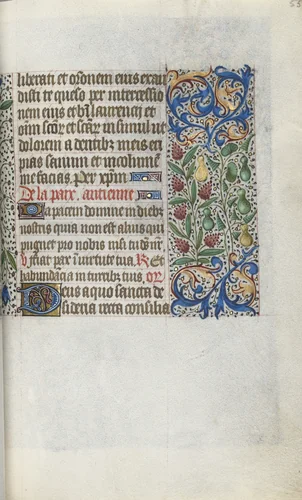 liberati et orationem eius exau
disti te queso per intercessio
nem eius et bti laurencij et
oim scor et scar in simul ut
dolorem a dentibz meis et ca
pias sanum et incolume
me facias. Per xpm
De la paix. antienne
Da pacem domine in diebz
nostris quia non est alius qui
pugnet pro nobis nisi tu dns
v fiat pax in uirtute tua R Et
habundancia in turribz tuis. or
Deus a quo sancta de
sideria recta consilia